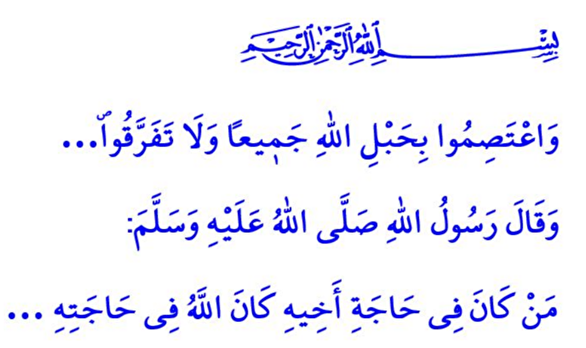 بِسْمِ اللهِ الرَّحْمٰنِ الرَّحِيمِ
وَاعْتَصِمُوا بِحَبْلِ اللهِ جَم۪يعًا وَلَا تَفَرَّقُواۖ...
وَقَالَ رَسُولُ اللهِ صَلَّى اللهُ عَلَيْهِ وَسَلَّمَ:
مَنْ كَانَ فِى حَاجَةِ أَخِيهِ كَانَ اللَّهُ فِى حَاجَتِهِ ...